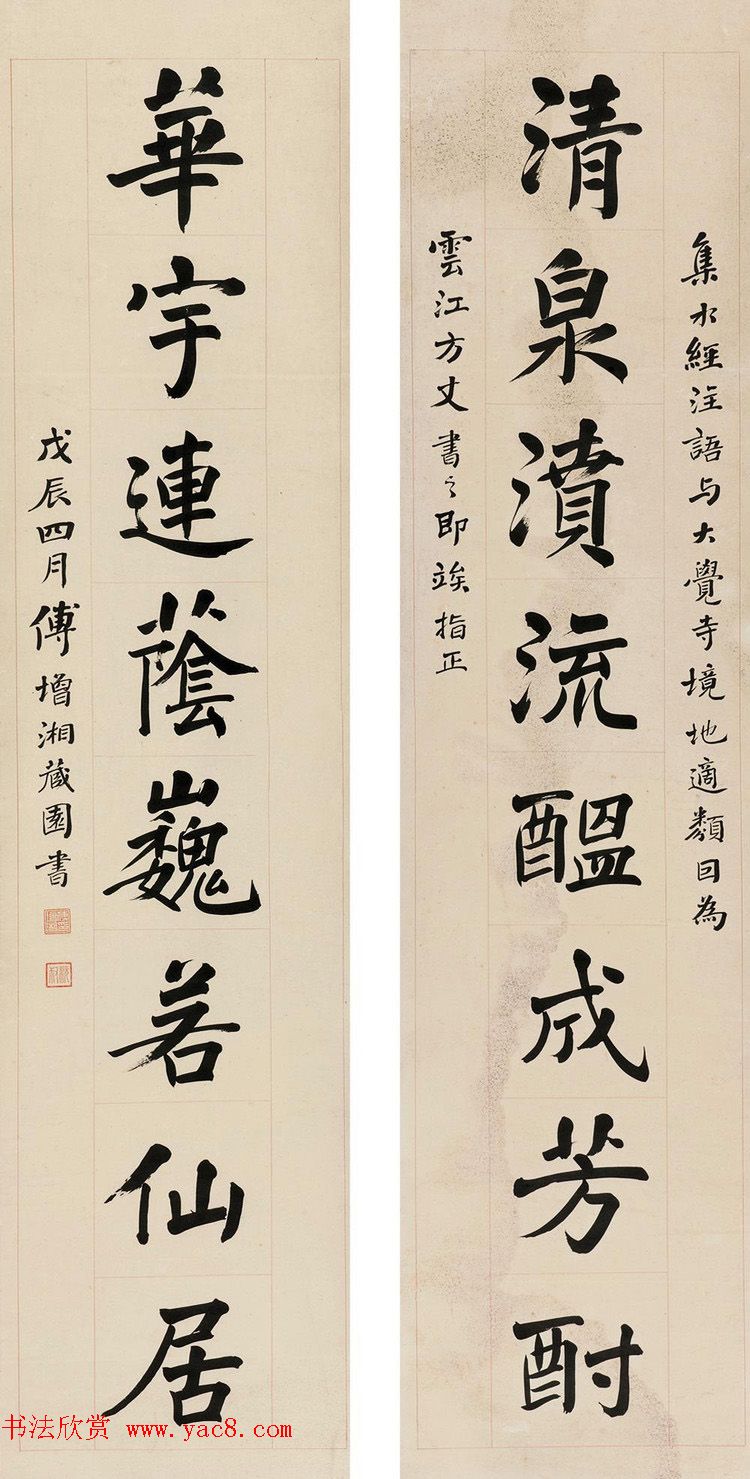 集水經注語与大覺寺境地適類因為
清泉濆流醖成芳酎
雲江方丈書之即竢指正
華宇連蔭巍若仙居
戊辰四月傅增湘藏園書
书法欣赏 www.yac8.com